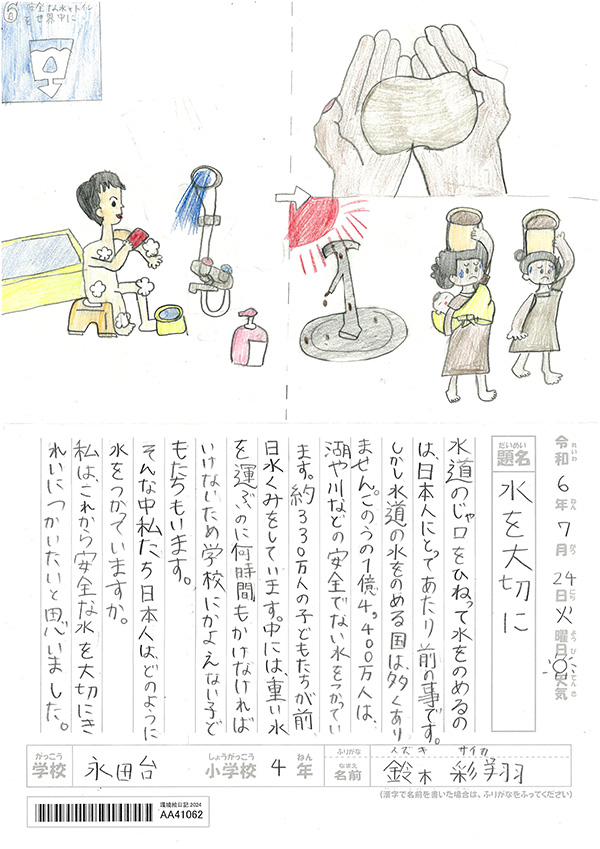 ⑥ 安全な水とトイレ
を世界中に
れいわ ねん がつ にち ようび てんき
令和6年7月24日火曜日 天気
だいめい
題名 水を大切に
水道のじゃ口をひねって水をのめるの
は、日本人にとってあたり前の事です。
しかし水道の水をのめる国は、多くあり
ません。このうの1億4,400万人は、
湖や川などの安全でない水をつかってい
ます。約330万人の子どもたちが前
日水くみをしています。中には、重い水
を運ぶのに何時間もかけなければ
いけないため学校にかよえない子ど
もたちもいます。
そんな中私たち日本人は、どのように
水をつかていますか。
私は、これから安全な水を大切にき
れいにつかいたいと思いました。
がっこう しょうがっこう ねん ふりがな スズキ サイカ
学校 永田台 小学校 4 年 なまえ 名前 鈴木 彩翔
(漢字で名前を書いた場合は、ふりがなをふってください)
環境絵日記 2024
AA41062